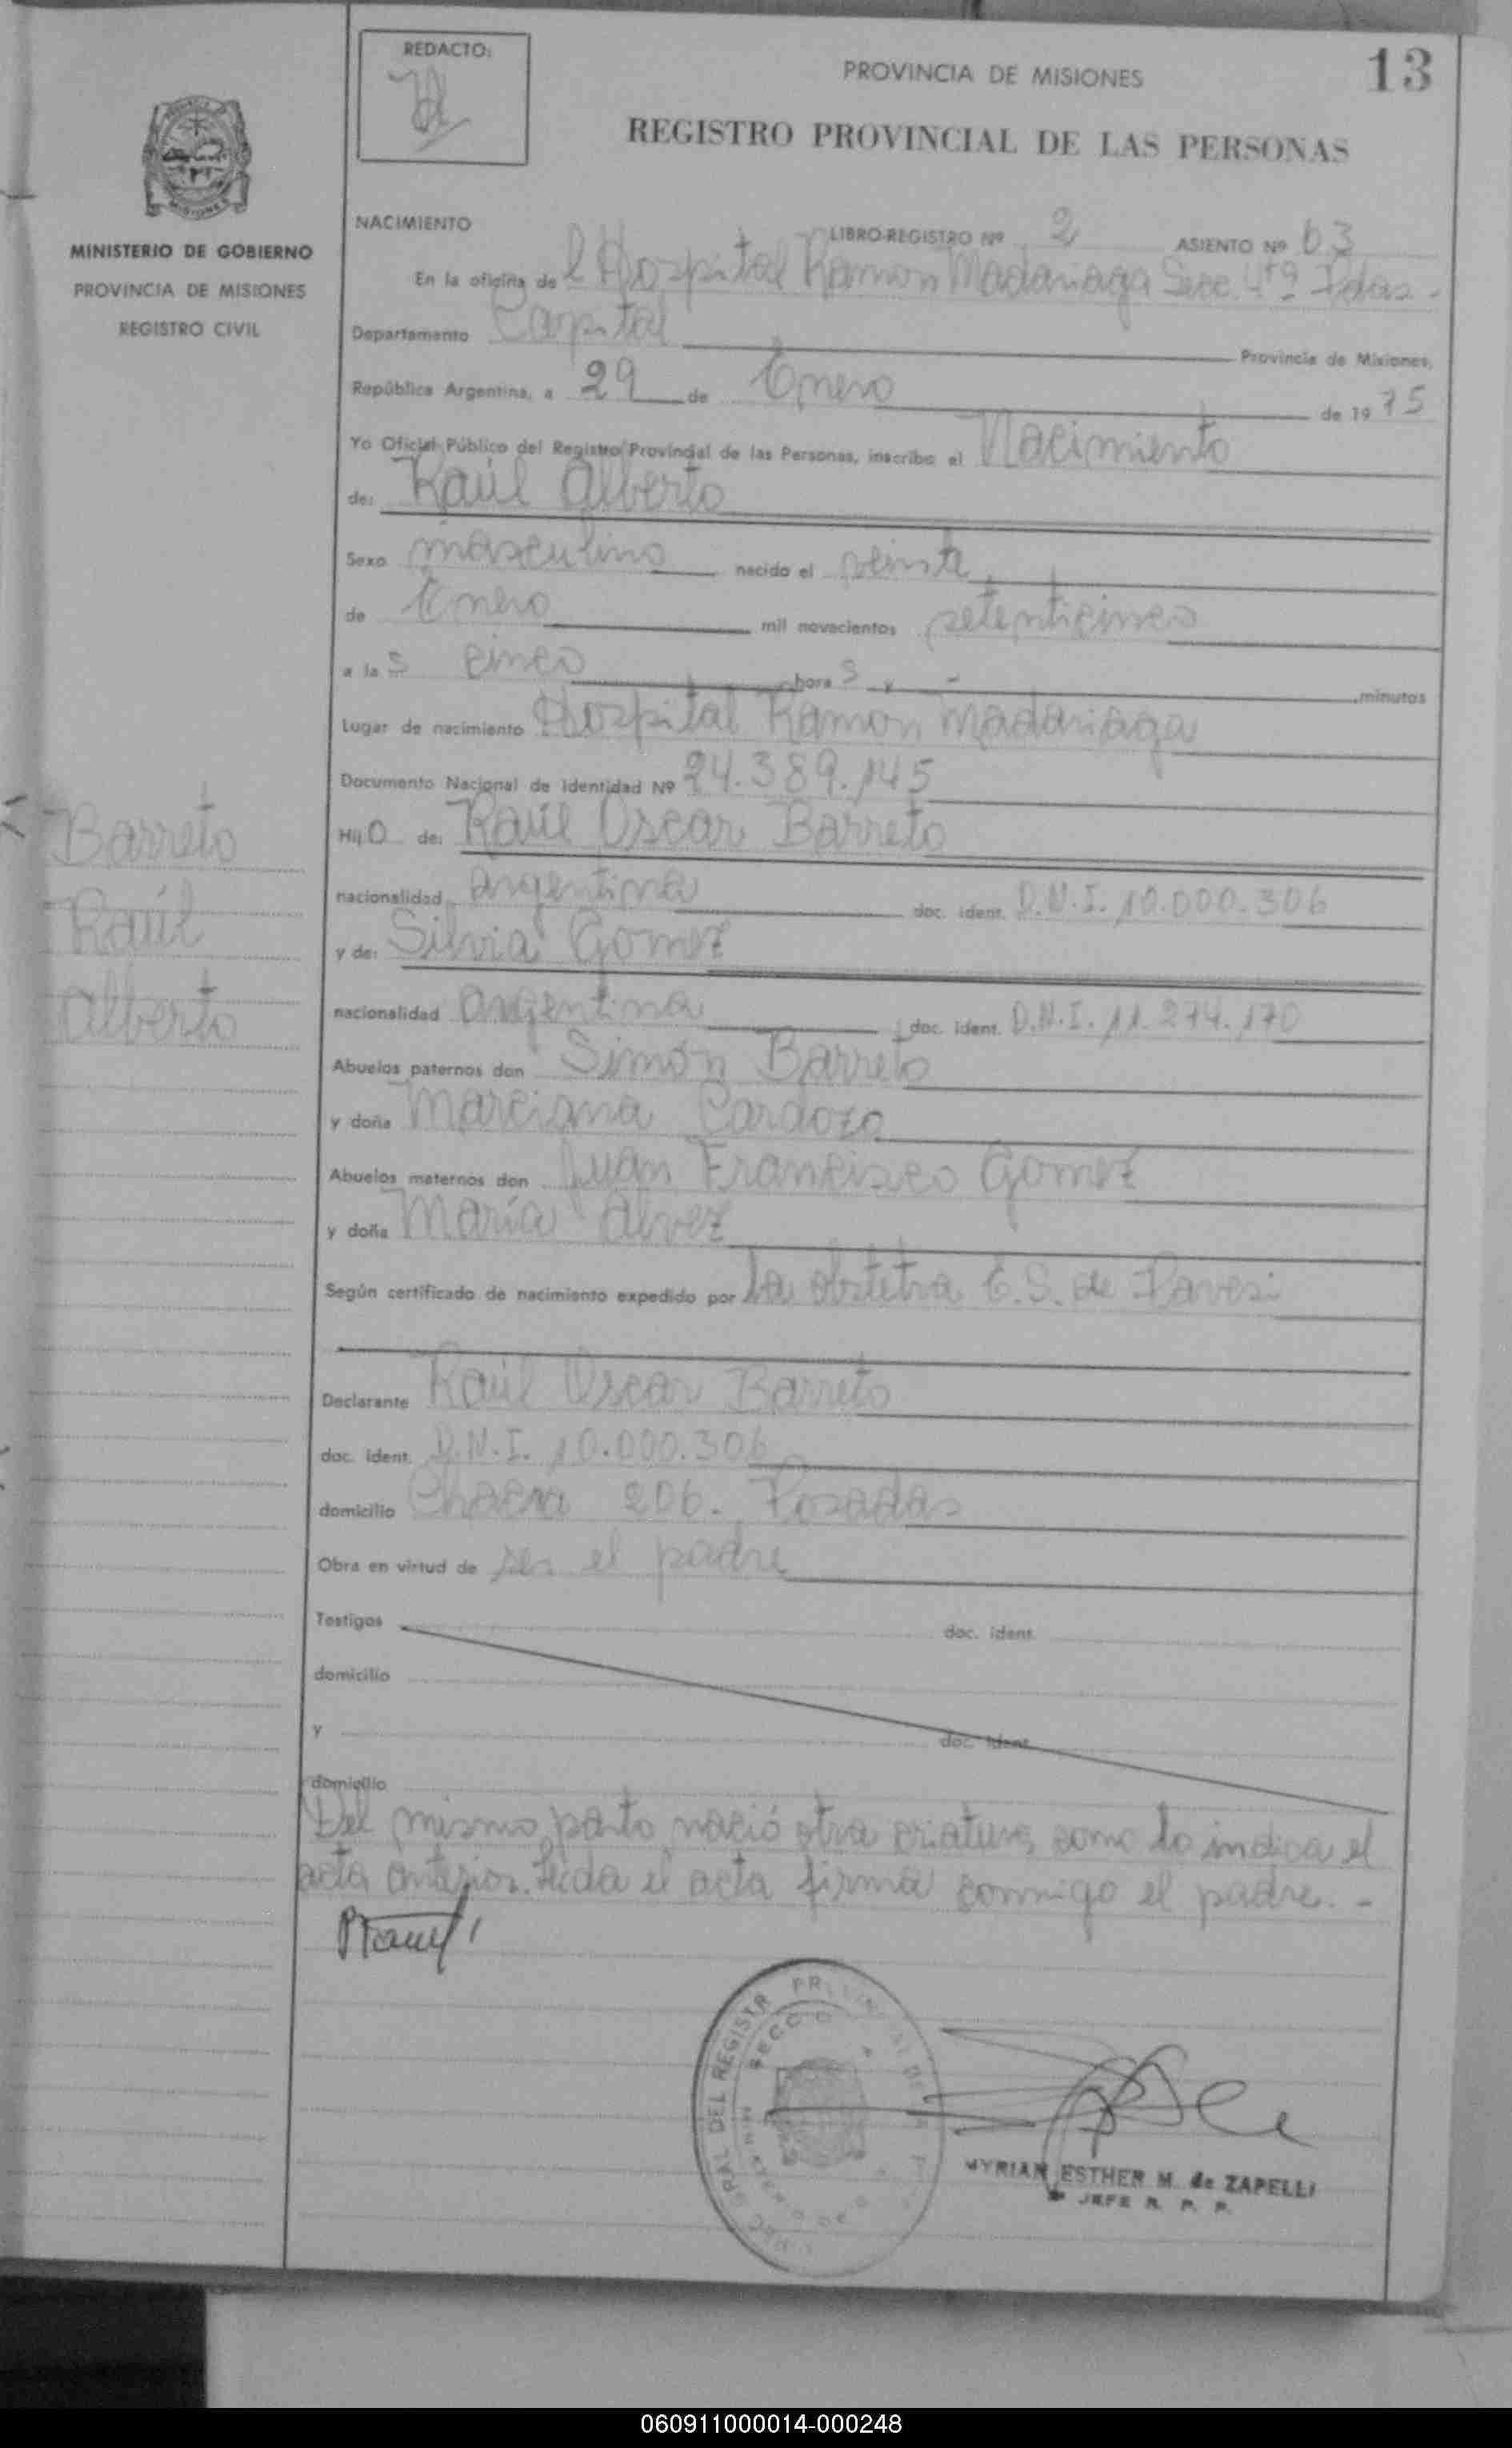 13
REDACTO:
PROVINCIA DE MISIONES
REGISTRO PROVINCIAL DE LAS PERSONAS
MISIONES
MINISTERIO DE GOBIERNO
PROVINCIA DE MISIONES
REGISTRO CIVIL
NACIMIENTO
LIBRO-REGISTRO Nº 2 ASIENTO Nº 63
En la oficina del Hospital Ramon Madariaga Secc. 4ta Pdas.-
Departamento Capital Provincia de Misiones,
República Argentina, a 29 de Enero de 1975
Yo Oficial Público del Registro Provincial de las Personas, inscribo el Nacimiento
de: Raúl Alberto
Sexo masculino nacido el veinte
de Enero mil novecientos setenticinco
a las cinco horas y - minutos
Lugar de nacimiento Hospital Ramon Madariaga
Documento Nacional de Identidad Nº 24.389.145
Hijo de: Raúl Oscar Barreto
nacionalidad argentina doc. ident. D.N.I. 10.000.306
y de: Silvia Gomez
nacionalidad argentina doc. ident. D.N.I. 11.274.170
Abuelos paternos don Simón Barreto
y doña Marciana Cardozo
Abuelos maternos don Juan Francisco Gomez
y doña María Alvez
Según certificado de nacimiento expedido por la obstetra E.S. de Pavesi
Declarante Raúl Oscar Barreto
doc. ident. D.N.I. 10.000.306
domicilio Chacra 206. Posadas
Obra en virtud de ser el padre
Testigos doc. ident.
domicilio
y doc. ident.
domicilio
Del mismo parto nació otra criatura, como lo indica el
acta anterior. Leida el acta firma conmigo el padre.-
Barreto
Raúl
Alberto
GRAL DEL REGISTR
MYRIAN ESTHER M. de ZAPELLI
JEFE R. P. P.
060911000014-000248